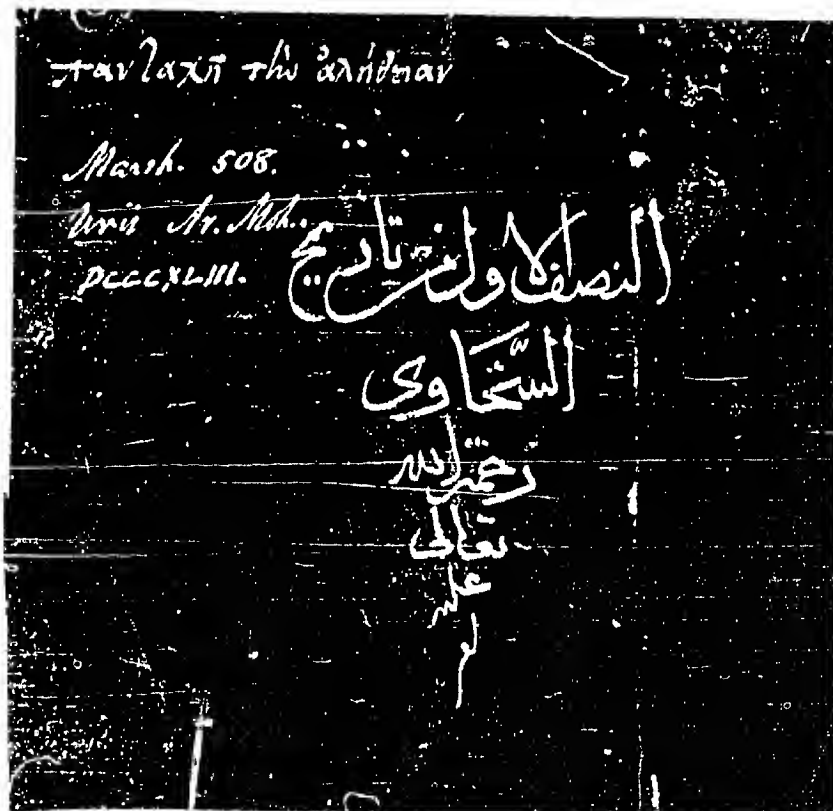 πανταχῆ τὴν ἀλήθειαν
Marsh. 508.
Urii Ar. Moh.
DCCCXLIII.
النصف الاول من تاريخ
السَّخاوي
رحمة الله
تعالى
عليه